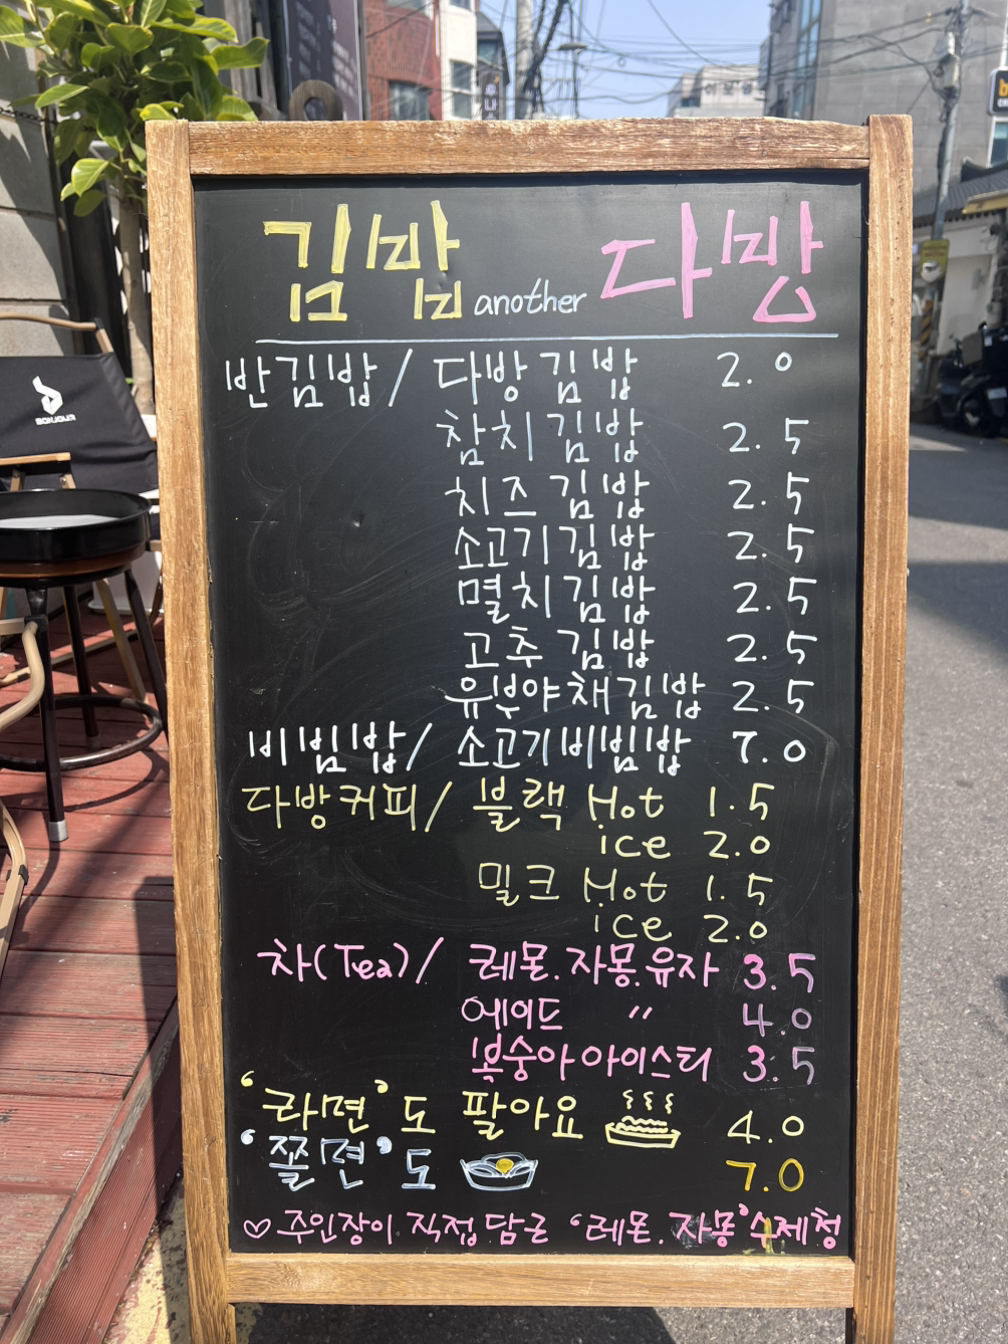 김밥 another 다방
반김밥 / 다방김밥 2.0
참치김밥 2.5
치즈김밥 2.5
소고기김밥 2.5
멸치김밥 2.5
고추김밥 2.5
유부야채김밥 2.5
비빔밥 / 소고기비빔밥 7.0
다방커피 / 블랙 Hot 1.5
ice 2.0
밀크 Hot 1.5
ice 2.0
차(Tea) / 레몬.자몽.유자 3.5
에이드 〃 4.0
복숭아아이스티 3.5
'라면'도 팔아요 4.0
'쫄면'도 7.0
♡ 주인장이 직접 담근 '레몬. 자몽' 수제청